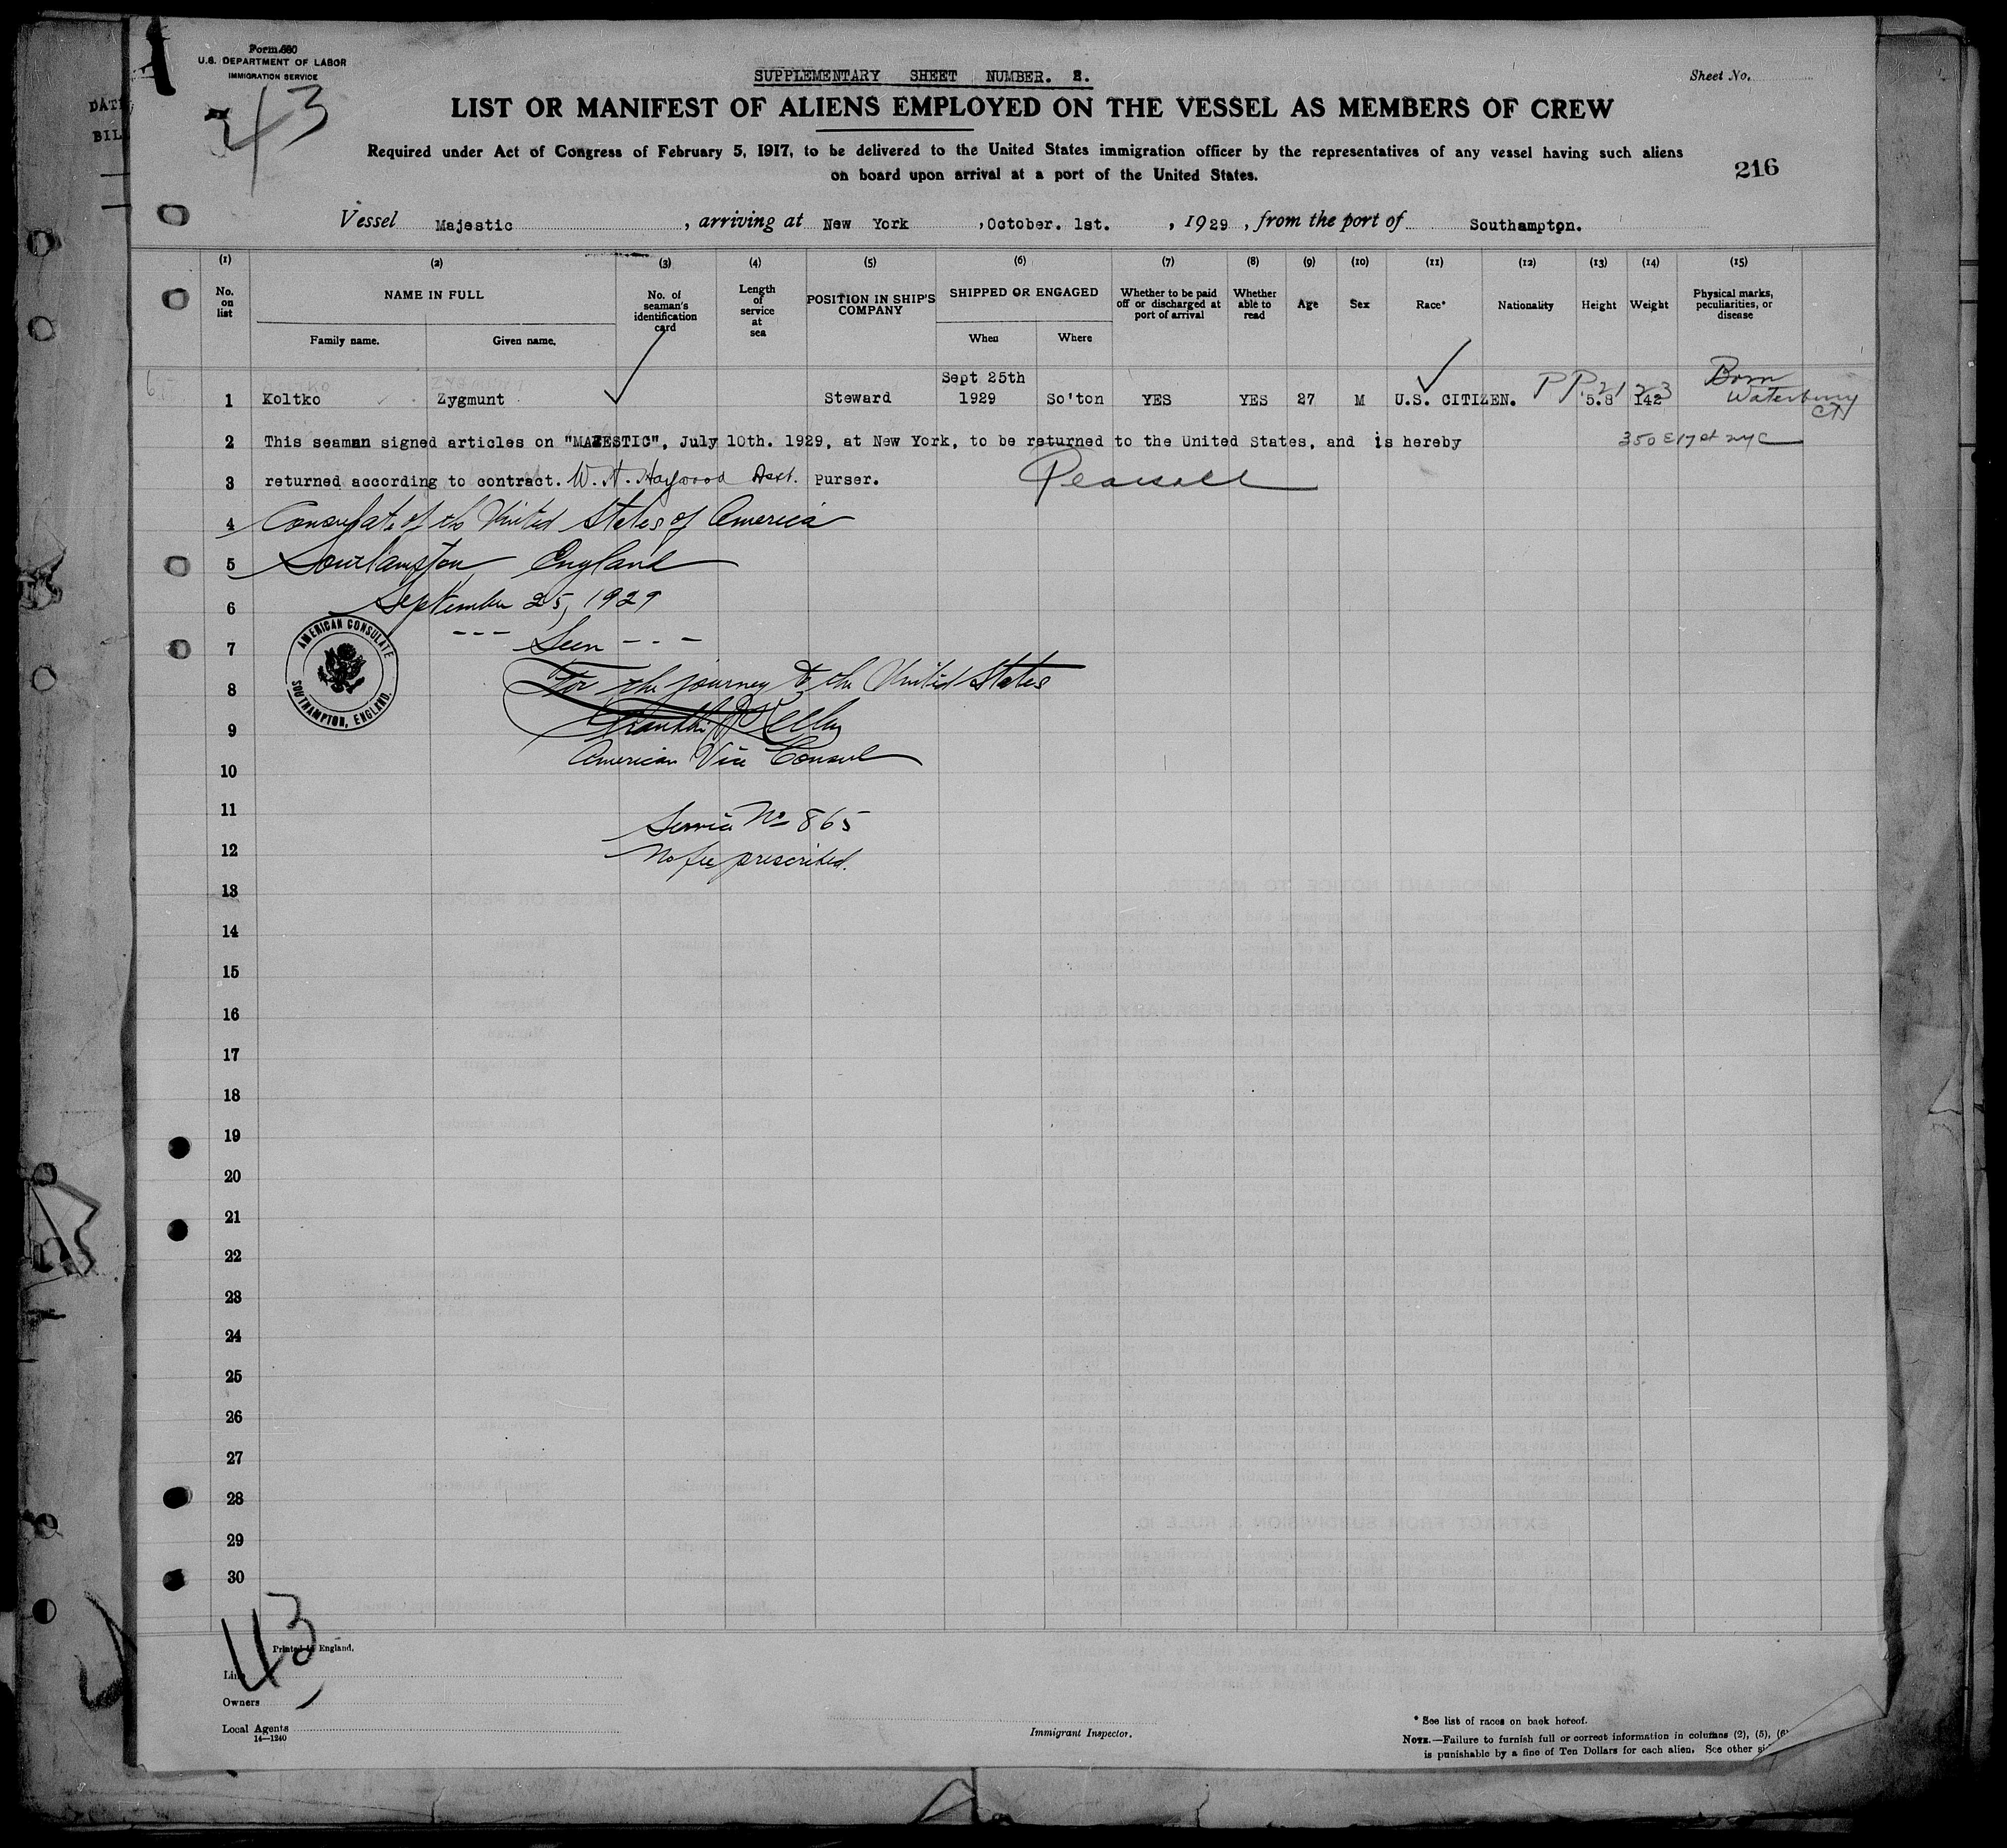 Form 680
U.S. DEPARTMENT OF LABOR
IMMIGRATION SERVICE
43
SUPPLEMENTARY SHEET NUMBER. 2.
Sheet No.
LIST OR MANIFEST OF ALIENS EMPLOYED ON THE VESSEL AS MEMBERS OF CREW
Required under Act of Congress of February 5, 1917, to be delivered to the United States immigration officer by the representatives of any vessel having such aliens
on board upon arrival at a port of the United States.
216
DAT
BIL
Vessel Majestic, arriving at New York, October. 1st., 1929, from the port of Southampton.
(1) (2) (3) (4) (5) (6) (7) (8) (9) (10) (11) (12) (13) (14) (15)
No. on list
NAME IN FULL
Family name.
Given name.
No. of seaman's identification card
Length of service at sea
POSITION IN SHIP'S COMPANY
SHIPPED OR ENGAGED
When
Where
Whether to be paid off or discharged at port of arrival
Whether able to read
Age
Sex
Race*
Nationality
Height
Weight
Physical marks, peculiarities, or disease
1 Koltko Zygmunt Steward Sept 25th 1929 So'ton YES YES 27 M U.S. CITIZEN. PP 5.8 142 Born Waterbury CT
2 This seaman signed articles on "MAJESTIC", July 10th. 1929, at New York, to be returned to the United States, and is hereby 350 E 17 st NYC
3 returned according to contract. W. N. Haywood Asst. Purser. Pearsall
4 Consulate of the United States of America
5 Southampton England
6 September 25, 1929
7 --- Seen ---
AMERICAN CONSULATE
SOUTHAMPTON, ENGLAND.
8 For the journey to the United States
9 Franklin
10 American Vice Consul
11 Service No 865
12 No fee prescribed.
13
14
15
16
17
18
19
20
21
22
23
24
25
26
27
28
29
30
43
Printed in England.
Line
Owners
Local Agents
14—1240
Immigrant Inspector.
* See list of races on back hereof.
NOTE.—Failure to furnish full or correct information in columns (2), (5), (6)
is punishable by a fine of Ten Dollars for each alien. See other si